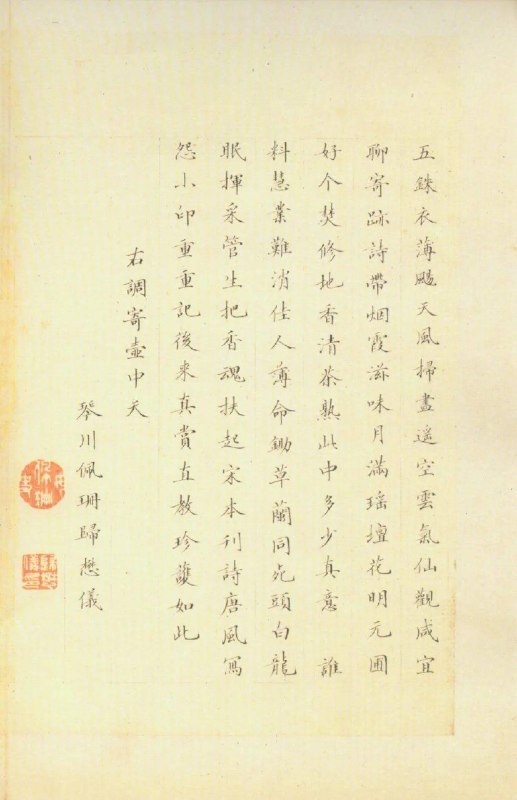 五銖衣薄颺天風掃盡遙空雲氣仙觀咸宜
聊寄跡詩帶烟霞滋味月滿瑤壇花明元圃
好个焚修地香清茶熟此中多少真意誰
料慧業難消佳人薄命鋤草蘭同死頭白龍
眠揮采管生把香魂扶起宋本刊詩唐風寫
怨小印重重記後来真賞直教珍護如此
右調寄壺中天
琴川佩珊歸懋儀